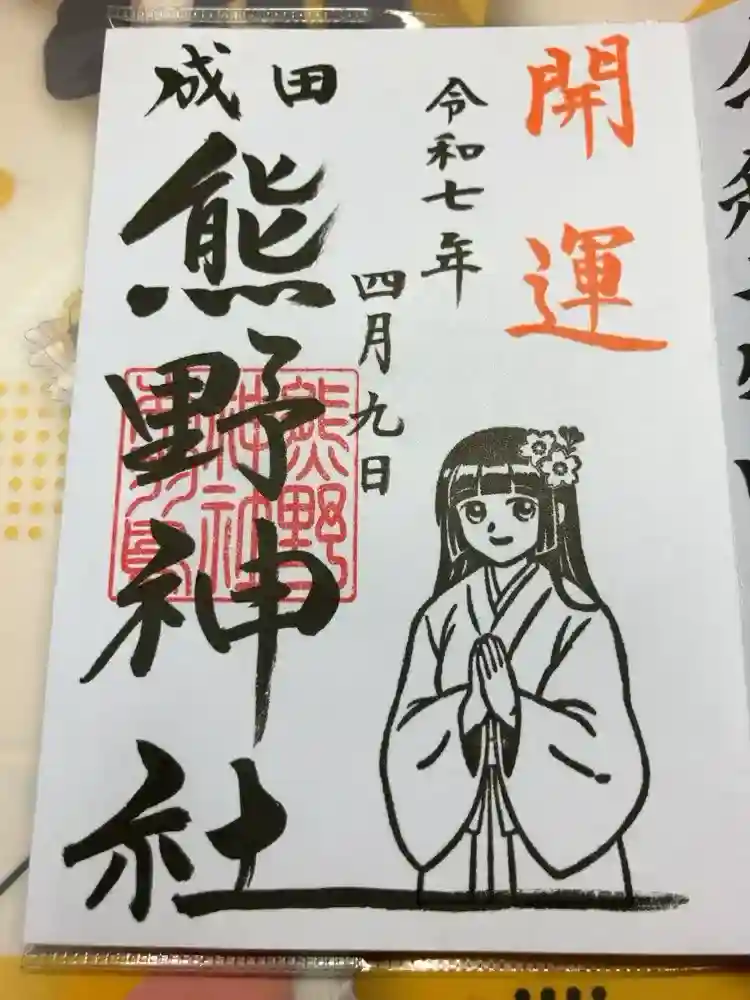 開運
令和七年
四月九日
成田
熊野神社
熊野
神社